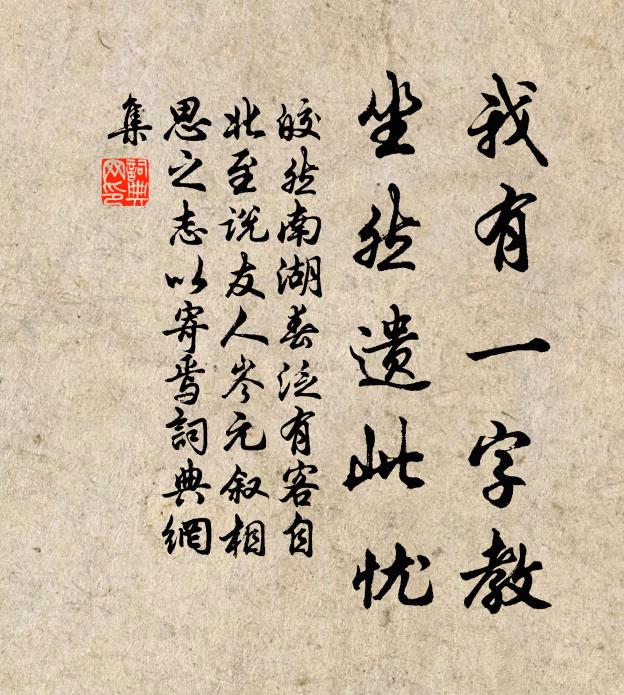 我有一字教
坐然遺此忧
皎然南湖春泛有客自
北至说友人岑元叙相
思之志以寄焉詞典網
集
詞典
网印